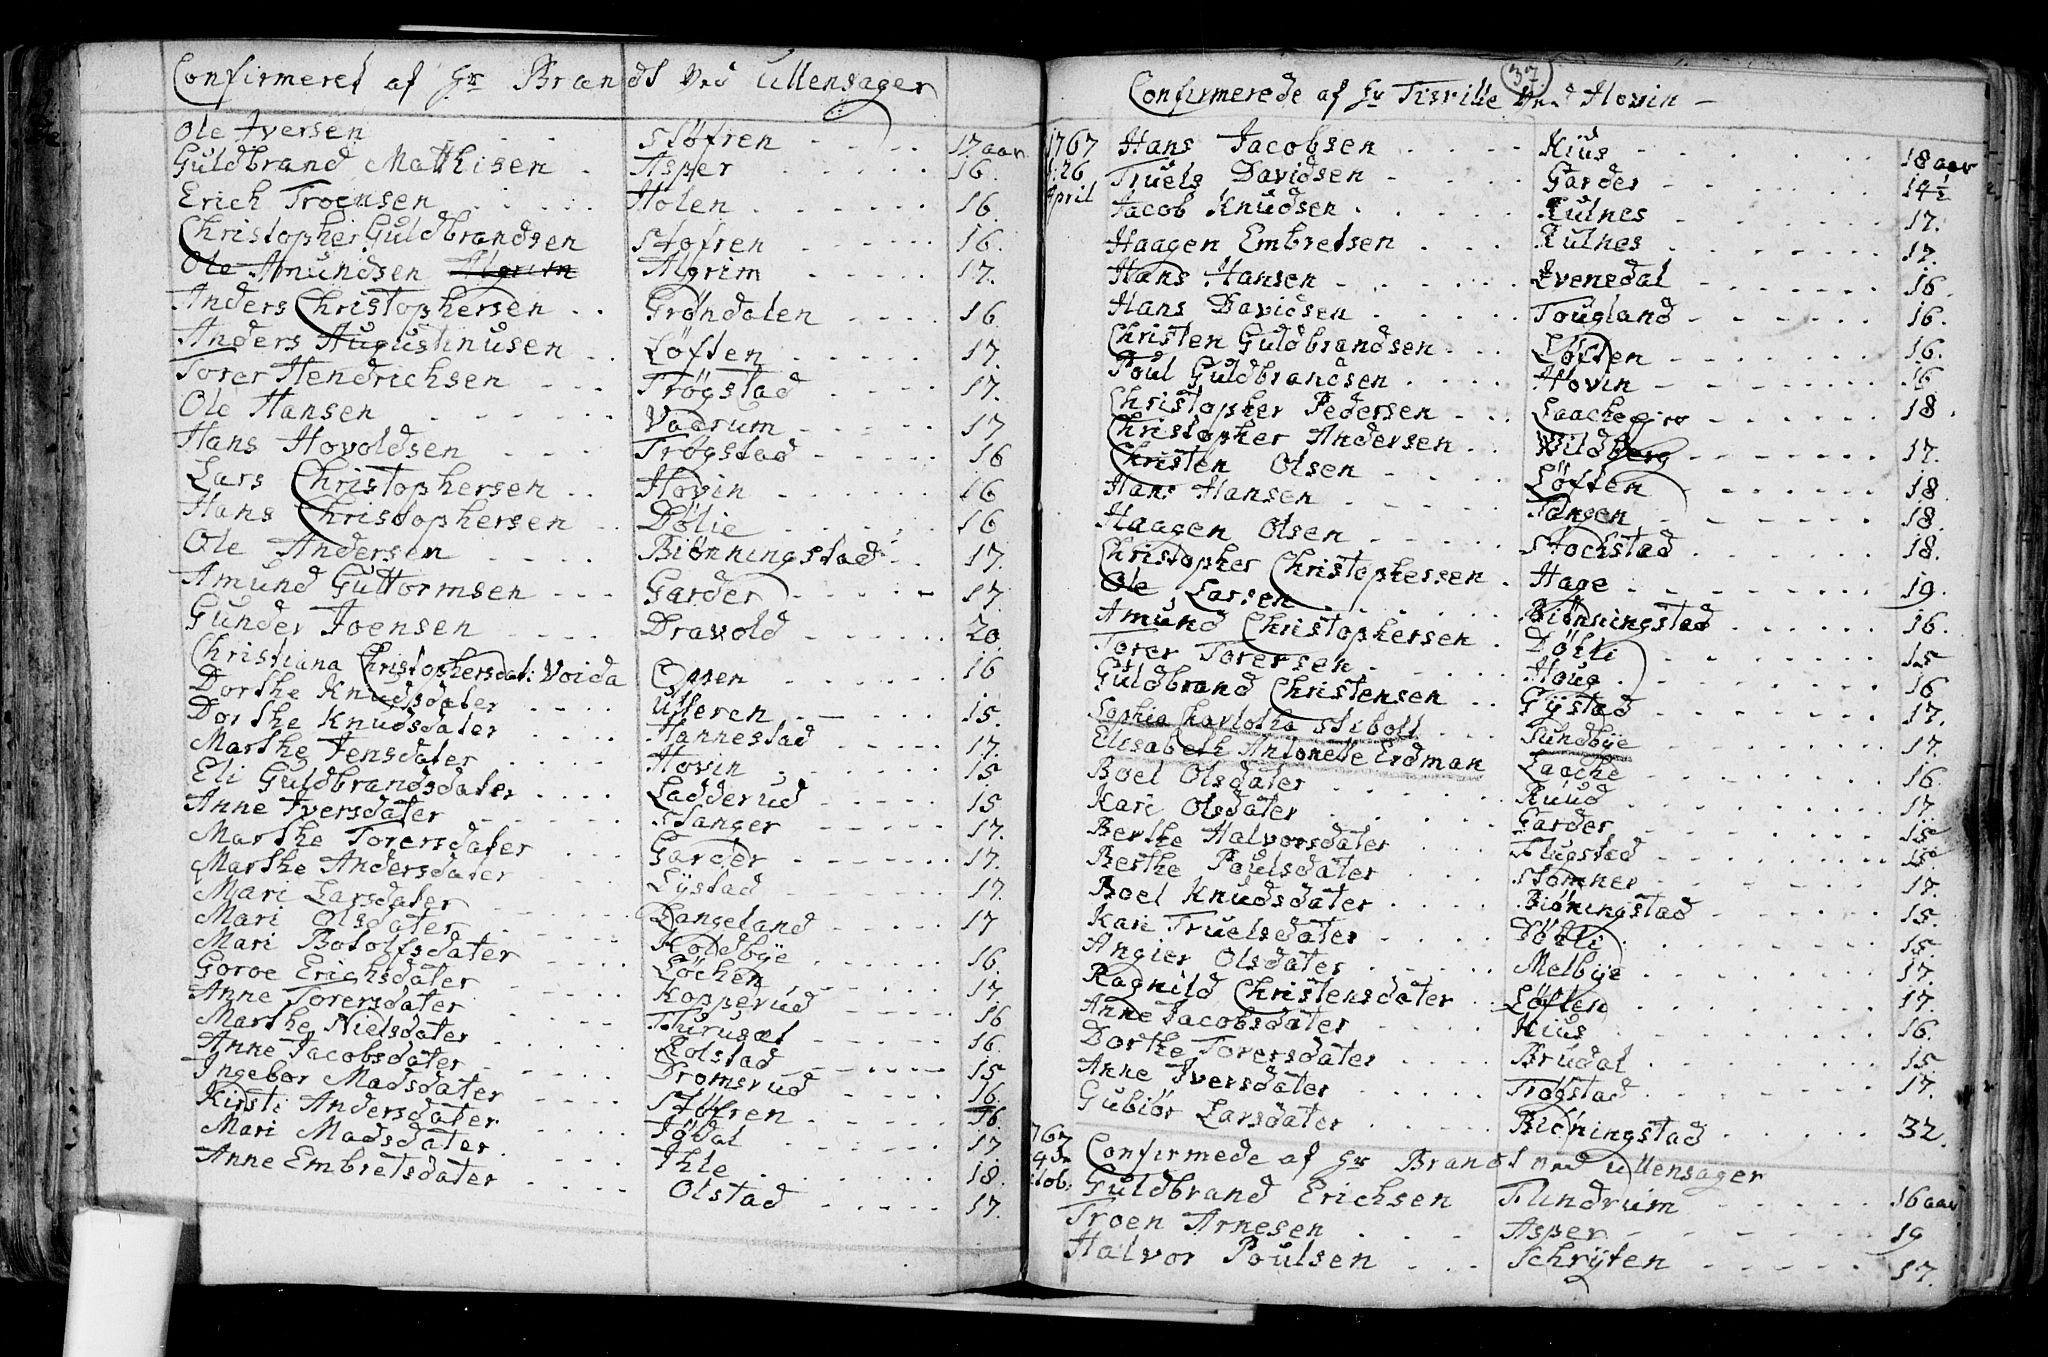 Confirmeret af Hr Brandt ved Ullensager
Ole Iversen Støfren 17 aar
Guldbrand Mathisen Asper 16.
Erich Troensen Holen 16.
Christopher Guldbrandsen Støfren 16.
Ole Amundsen Algrim Algrim 17.
Anders Christophersen Grøndalen 16
Anders Augustinusen Løften 17.
Torer Hendrichsen Trøgstad 17.
Ole Hansen Vaarum 17
Hans Hovoldsen Trøgstad 16
Lars Christophersen Hovin 16
Hans Christophersen Dølie 16
Ole Andersen Biønningstad 17.
Amund Guttormsen Garder 17.
Gunder Joensen Dravold 20.
Christiana Christophersdat: Voida Opsen 16
Dorthe Knudsdater Utteren 15.
Dorthe Knudsdater Hannestad 17.
Marthe Jensdater Hovin 15
Eli Guldbrandsdater Ladderud 15
Anne Iversdater Stanger 17.
Marthe Torersdater Garder 17.
Marthe Andersdater Lÿstad 17.
Mari Larsdater Langeland 17
Mari Olsdater Holdbÿe 16.
Mari Botolfsdater Løchen 17
Goroe Erichsdater Kopperud 16
Anne Torersdater Thirusæt 16.
Marthe Nielsdater Rolstad 15
Anne Jacobsdater Dromsrud 16.
Ingebor Madsdater Støfren 16.
Kirsti Andersdater Jødal 17.
Mari Madsdater Ihle 18.
Anne Embretsdater Olstad 17.
37
Confirmerede af Hr ved Hovin
1767 Hans Jacobsen Kius 18 aar
d: 26 Truels Davidsen Garder 14½
April Jacob Knudsen Kulnes 17.
Haagen Embretsen Kulnes 17.
Hans Hansen Evensdal 16.
Hans Davidsen Tougland 16.
Christen Guldbrandsen Løften 16.
Poul Guldbrandsen Hovin 16
Christopher Pedersen 18.
Christopher Andersen Wildberg 17.
Christen Olsen Løften 18.
Hans Hansen Tangen 18.
Haagen Olsen Stochstad 18.
Christopher Christophersen Hage 19.
Ole Larsen Biønningstad 16.
Amund Christophersen Døhli 15
Torer Torersen Houg 16
Guldbrand Christensen Gÿstad 17.
Sophia Charlotha Stiboll Sundbÿe 17.
Elisabeth Antonette Erdman Laache 16.
Boel Olsdater Ruud 17.
Kari Olsdater Garder 15
Berthe Halvorsdater Flugstad 15
Berthe Poulsdater Stomner 17.
Boel Knudsdater Biøningstad 15.
Kari Truelsdater Døhli 15.
Angier Olsdater Melbÿe 17.
Ragnild Christensdater Løften 17.
Anne Jacobsdater Kius 16.
Dorthe Torersdater Brudal 15.
Anne Iversdater Trøgstad 17.
Gubiør Larsdater Biøningstad 32.
767 4de Confirmede af Hr Brandt ved Ullensager
Guldbrand Erichsen Flindrum 16 aar
Troen Arnesen Asper 19
Halvor Poulsen Schrÿten 17.